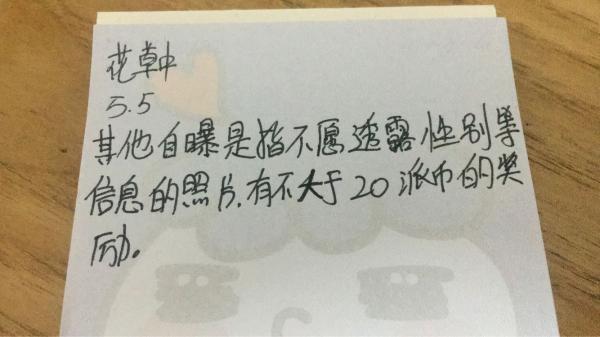 花草中
5.5
其他自曝是指不愿透露性别等
信息的照片,有不大于20派币的奖
励。